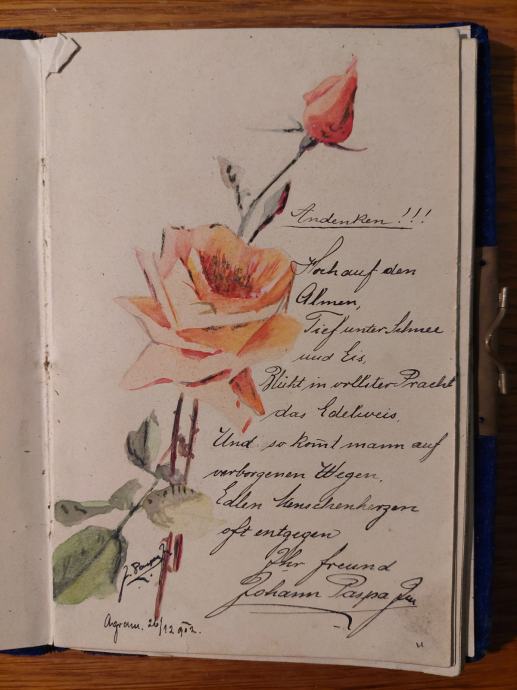 Andenken!!!
Hoch auf den
Almen,
Tief unter Schnee
und Eis,
Blüht in vollster Pracht
das Edelweis.
Und so kom̄t mann auf
verborgenen Wegen,
Edlen Menschenherzen
oft entgegen
Ihr freund
Johann Paspa Jun
J. Paspa J.
Agram. 26/12 902.